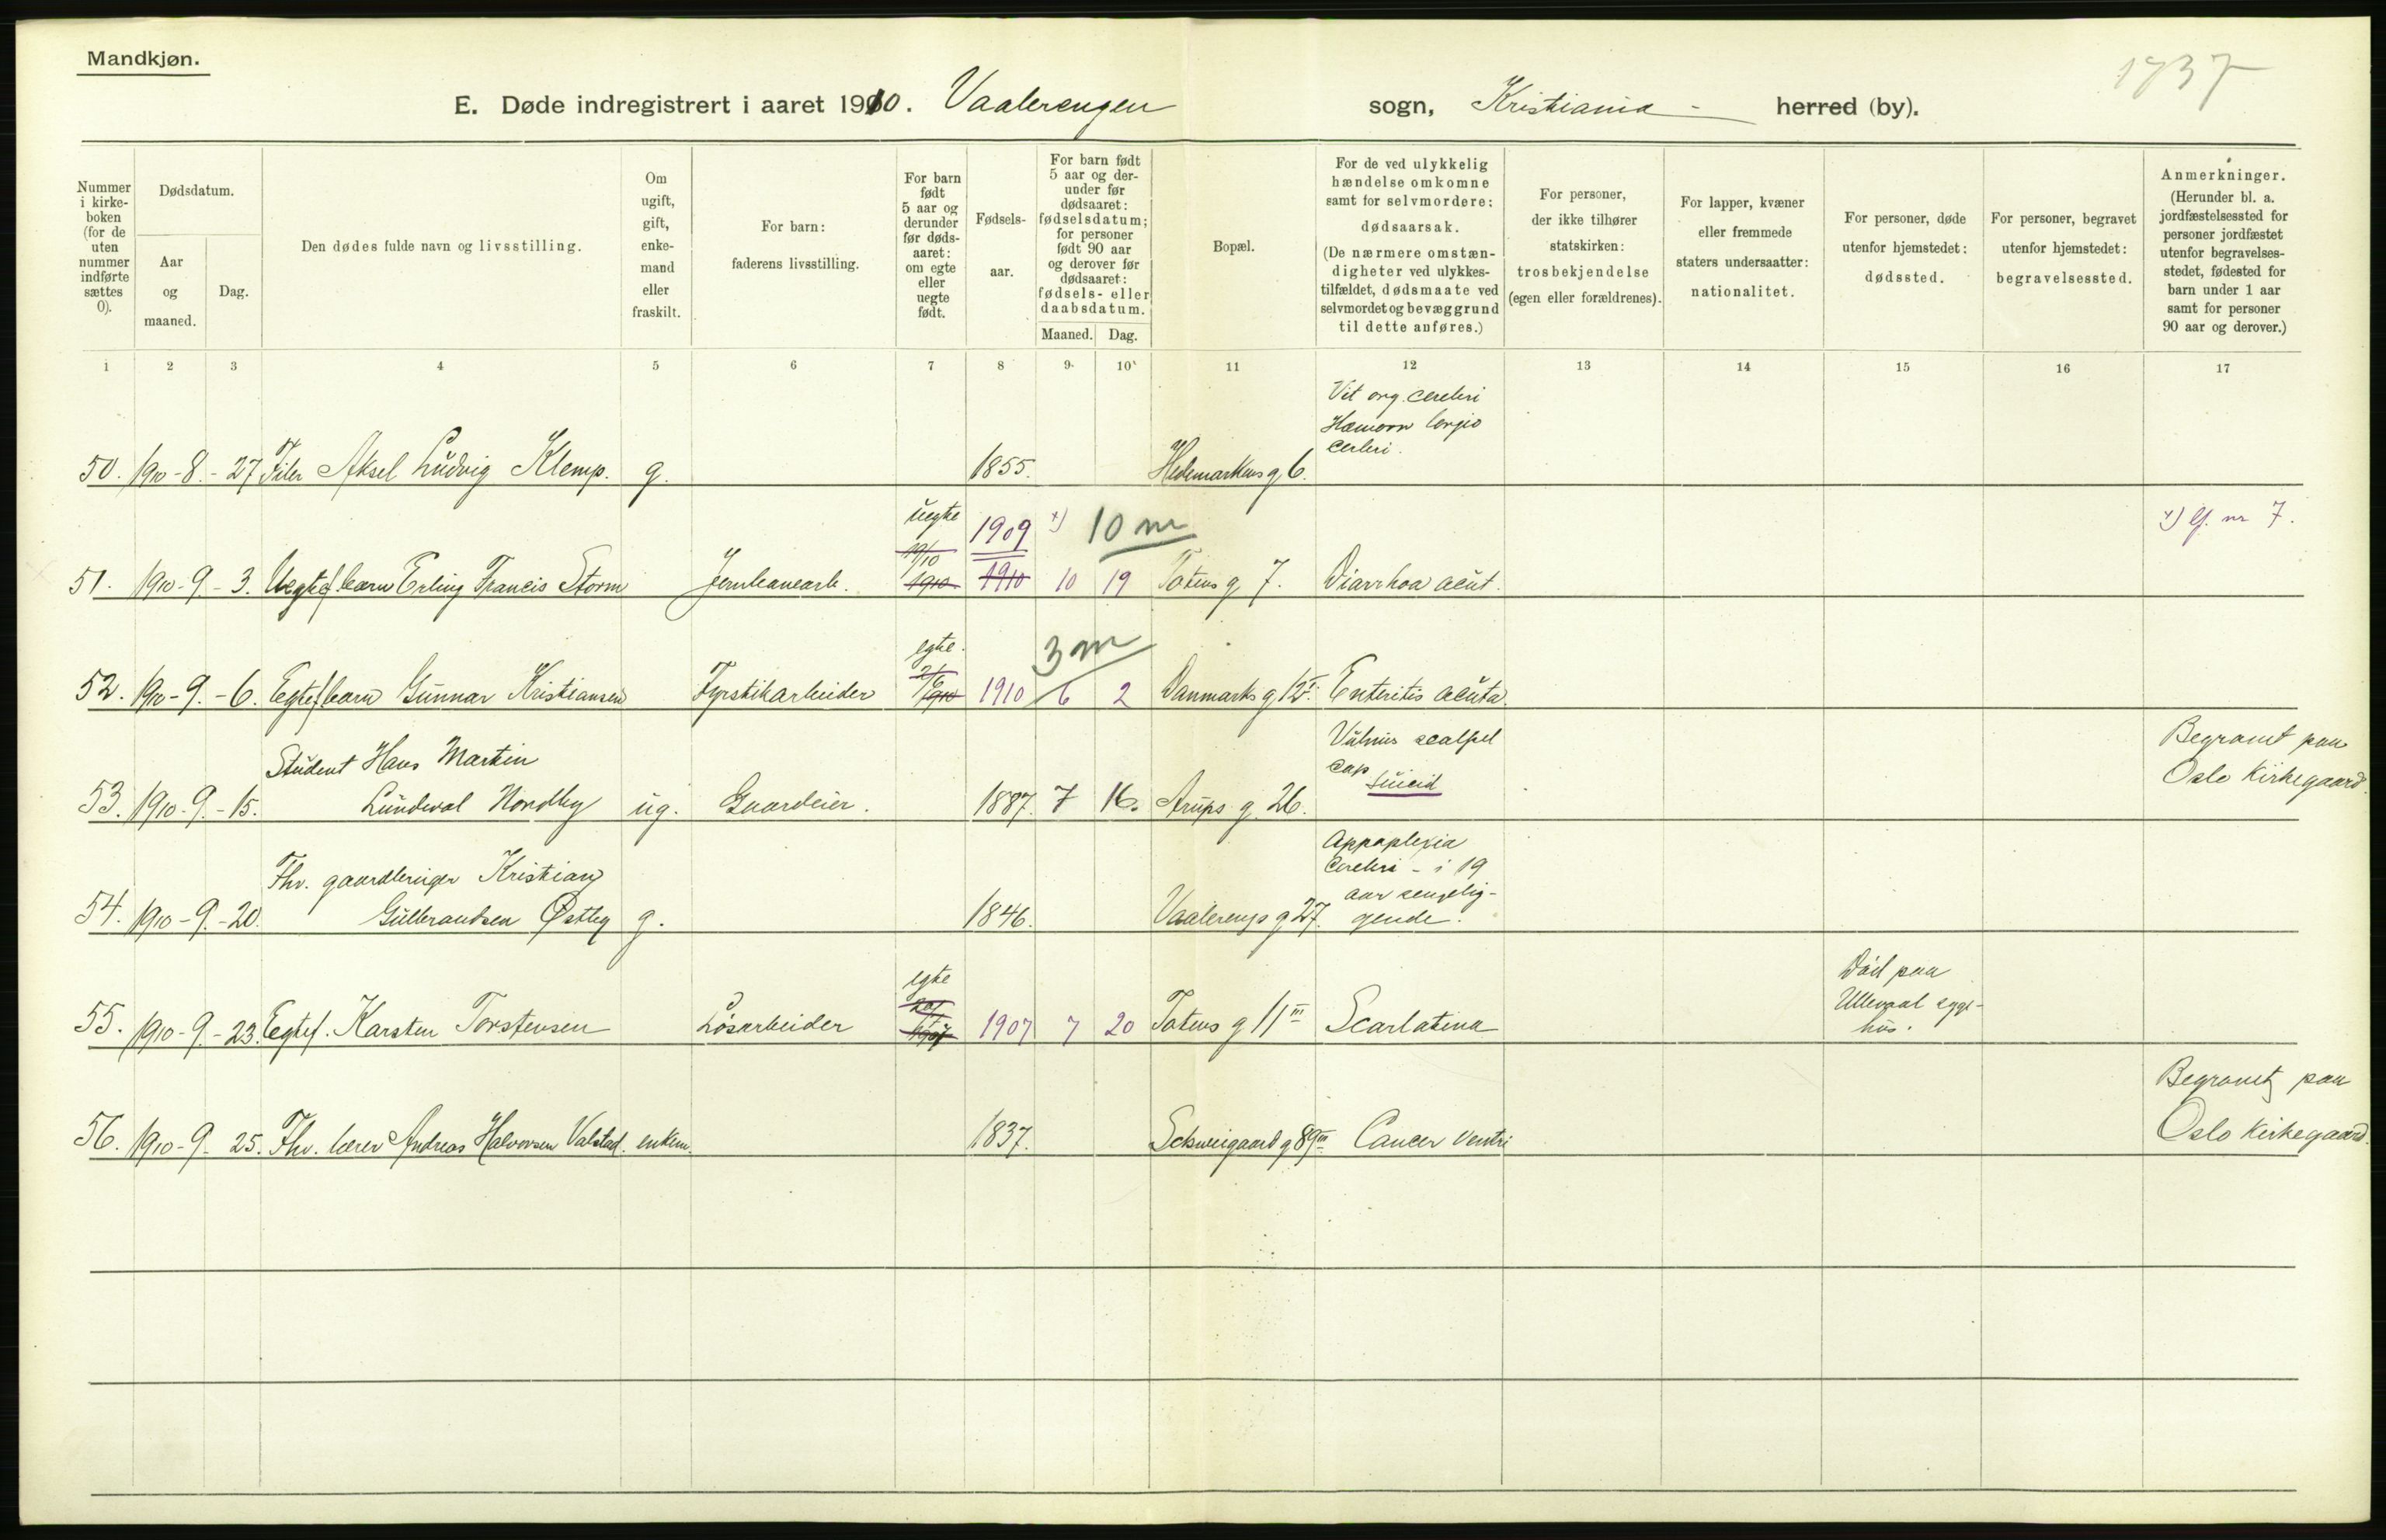 Mandkjøn.
1737
E. Døde indregistrert i aaret 1910. Vaalerengen sogn, Kristiania - herred (by).
Nummer i kirke-boken (for de uten nummer indførte sættes 0).
Dødsdatum.
Aar og maaned.
Dag.
Den dødes fulde navn og livsstilling.
Om ugift, gift, enke-mand eller fraskilt.
For barn: faderens livsstilling.
For barn født 5 aar og derunder før døds-aaret: om egte eller uegte født.
Fødsels-aar.
For barn født 5 aar og der-under før dødsaaret: fødselsdatum; for personer født 90 aar og derover før dødsaaret: fødsels- eller daabsdatum.
Maaned.
Dag.
Bopæl.
For de ved ulykkelig hændelse omkomne samt for selvmordere: dødsaarsak. (De nærmere omstæn-digheter ved ulykkes-tilfældet, dødsmaate ved selvmordet og bevæggrund til dette anføres.)
For personer, der ikke tilhører statskirken: trosbekjendelse (egen eller forældrenes).
For lapper, kvæner eller fremmede staters undersaatter: nationalitet.
For personer, døde utenfor hjemstedet: dødssted.
For personer, begravet utenfor hjemstedet: begravelsessted.
Anmerkninger. (Herunder bl. a. jordfæstelsessted for personer jordfæstet utenfor begravelses-stedet, fødested for barn under 1 aar samt for personer 90 aar og derover.)
1 2 3 4 5 6 7 8 9 10 11 12 13 14 15 16 17
Vit org. cerebri
50. 1910-8.-27 Filer Aksel Ludvig Klemp. g. 1855. Hedemarkens g 6.
uegte 1909 x) 10 m x) cf. nr 7.
19/10
51. 1910-9.-3. Uegtef barn Erling Francis Storm Jernbanearb. 1910 1910 10 19 Totens g 7. Diarrhoa acut.
egte. 3 m
2/6
52. 1910-9.-6. Egtef barn Gunnar Kristiansen Fyrstikarbeider 1910 1910 6 2 Danmarks g 12 I. Enteritis acuta.
Student Hans Martin Vulnus scalpel Begravet paa
cap suicid Oslo Kirkegaard.
53. 1910-9.-15. Lundwal Nordby ug. Gaardeier. 1887. 7 16. Arups g 26.
Fhv. gaardbruger Kristian Appoplexia
Cerebri - i 19
aar sengelig-
54. 1910-9.-20. Gulbrandsen Østby g. 1846. Vaalerengs g 27. gende.
egte Død paa
20/7 Ullevaal syge-
55. 1910-9.-23. Egtef. Karsten Torstensen Løsarbeider 1907 1907 7 20 Totens g 11 III Scarlatina hus.
Begravet paa
56. 1910-9.-25. Fhv. lærer Andreas Halvorsen Valstad. enkem. 1837. Schweigaard g 89 III Cancer ventri Oslo Kirkegaard.